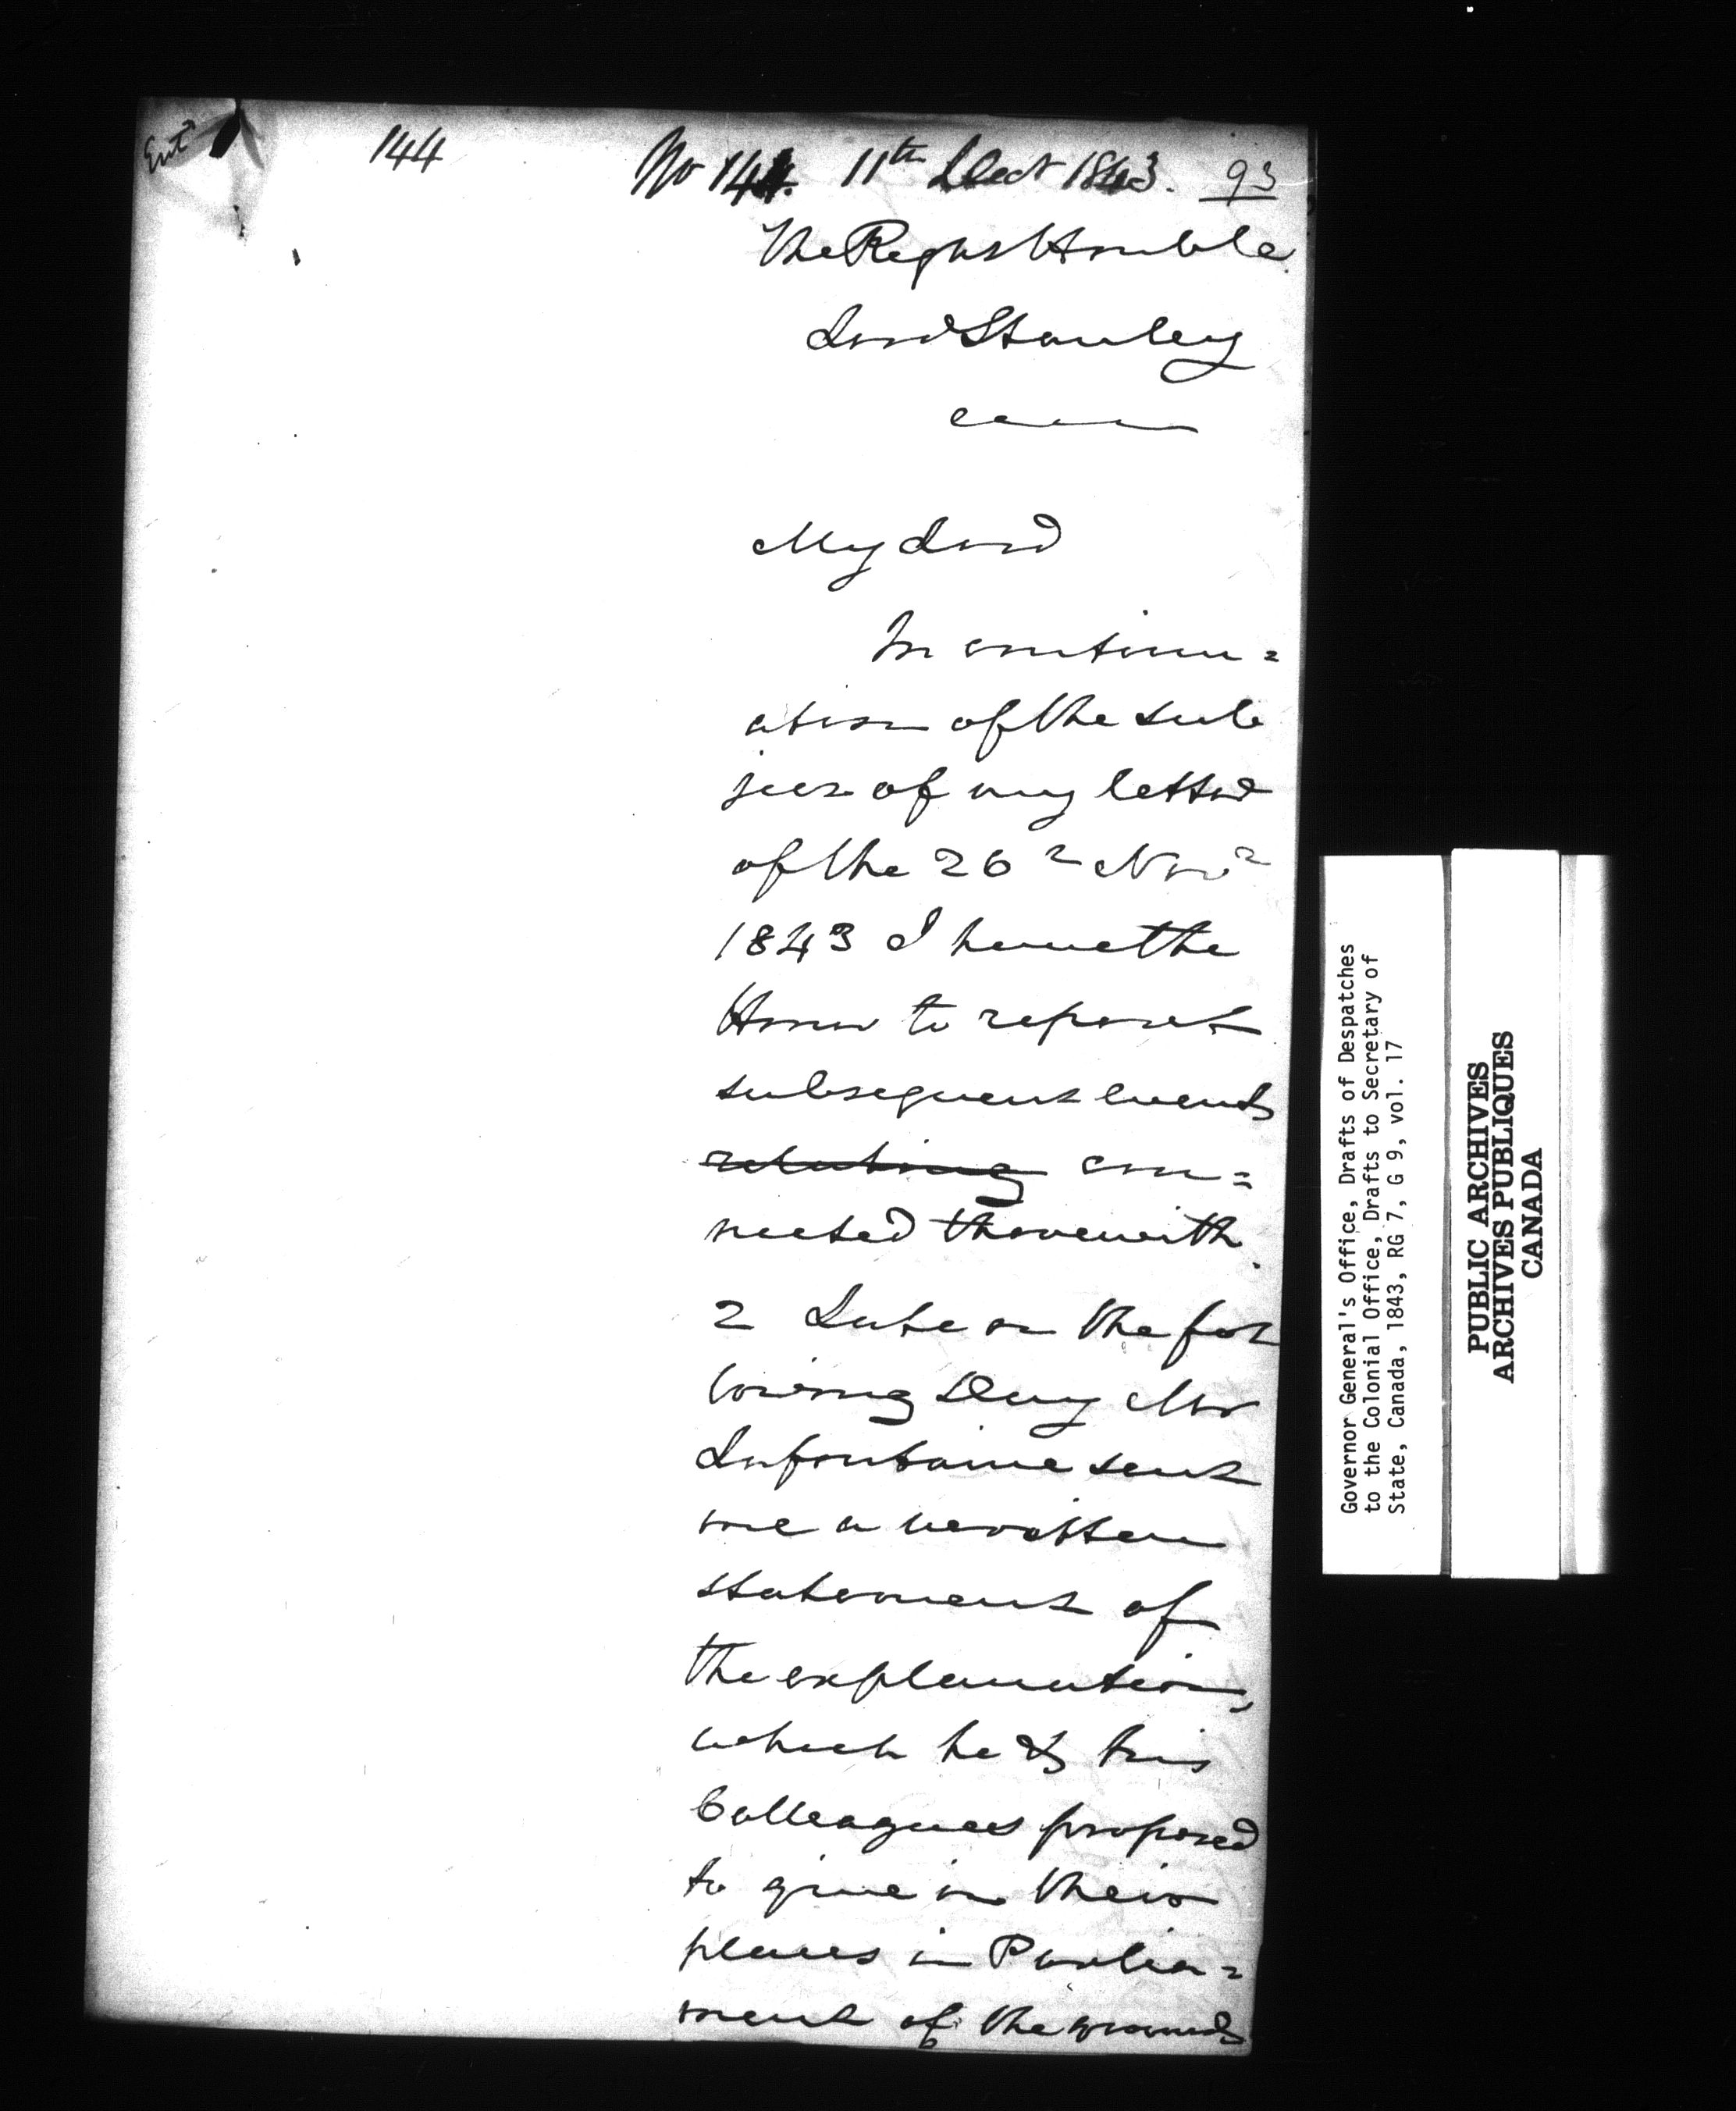 Ent^d
144
No 144. 11th Decr 1843. 93
The Right Honble
Lord Stanley
My Lord
In continu=
ation of the sub
ject of my letter
of the 26th Novr
1843 I have the
Honor to report
subsequent events
relating con=
nected therewith.
2 Late on the fol
lowing Day Mr
Lafontaine sent
me a written
statement of
the explanation,
which he & his
Colleagues proposed
to give in their
places in Parlia=
ment of the grounds
Governor General's Office, Drafts of Despatches
to the Colonial Office, Drafts to Secretary of
State, Canada, 1843, RG 7, G 9, vol. 17
PUBLIC ARCHIVES
ARCHIVES PUBLIQUES
CANADA